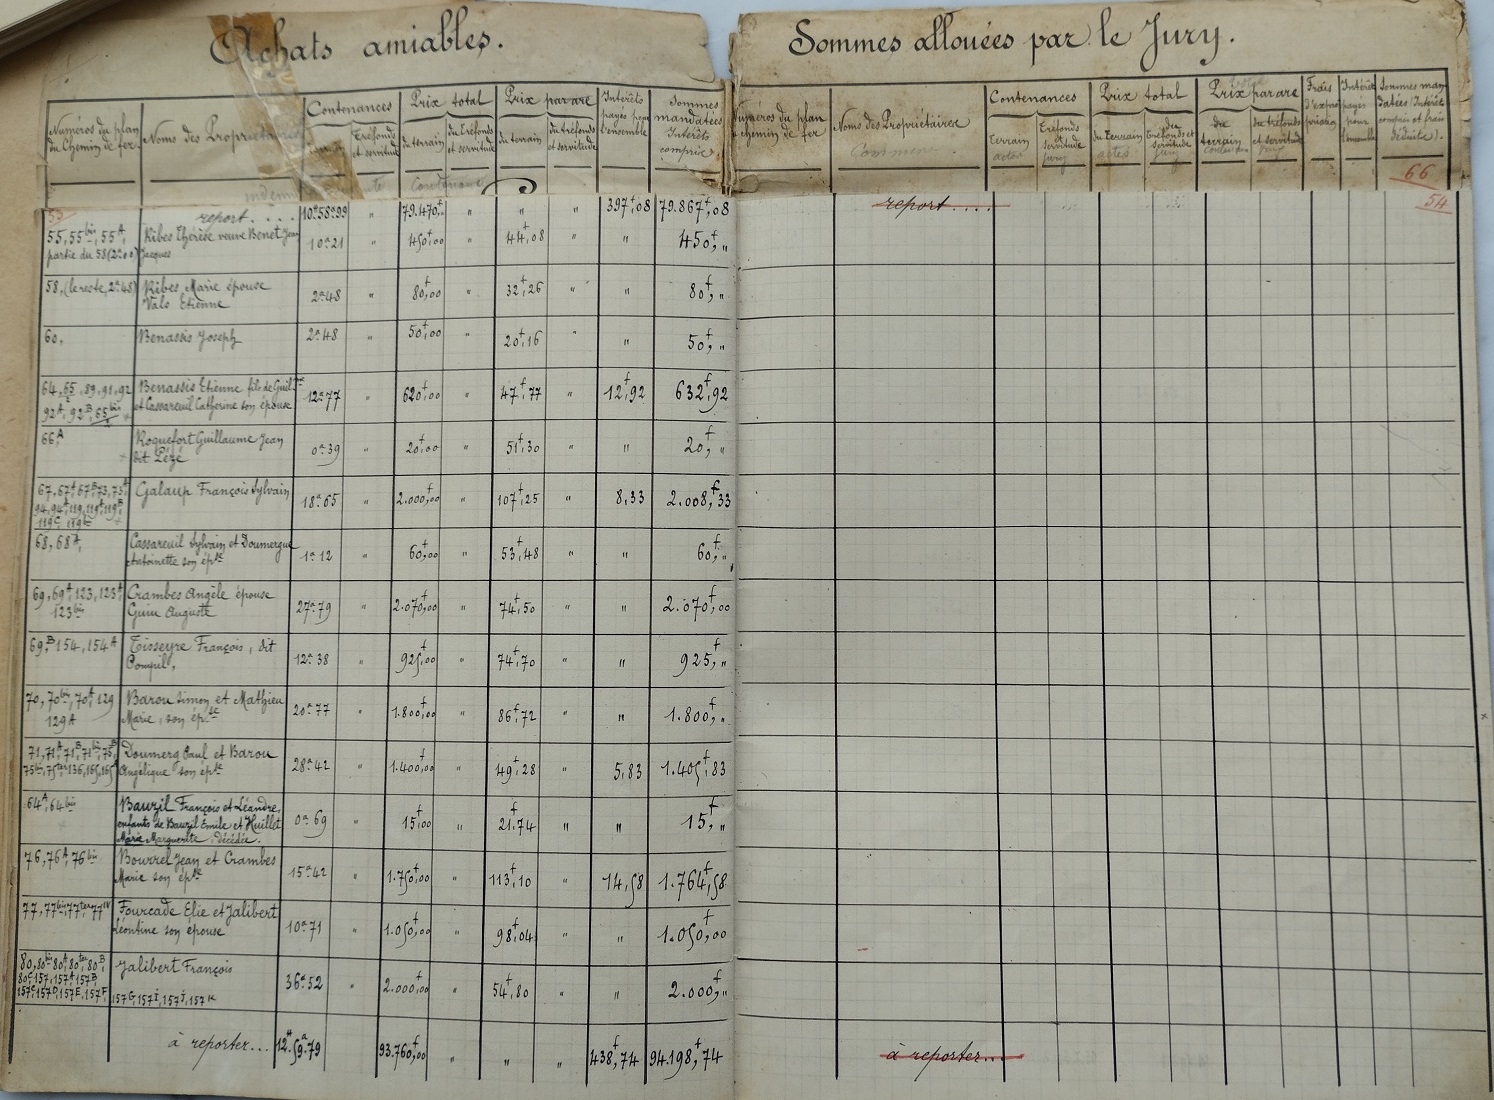 Achats amiables.
Numéros du plan du Chemin de fer.
Noms des Propriétaires
Contenances
Tréfonds et servitude
Prix total
du terrain
du tréfonds et servitude
Prix par are
du terrain
du tréfonds et servitude
Intérêts payés pour l'ensemble
Sommes mandatées Intérêts compris.
report.... 10ª58ª99 " 79.470f,. " " " 397f,08 79.867f,08
55, 55bis, 55A, Ribes Thérèse veuve Benet Jean
partie du 58 (2ª00) Jacques 10ª21 " 450f,00 " 44f,08 " " 450f,"
58, (le reste, 2ª48) Ribes Marie épouse
Vals Etienne 2ª48 " 80f,00 " 32f,26 " " 80f,"
60, Benassis Joseph 2ª48 " 50f,00 " 20f,16 " " 50f,"
64, 65, 89, 91, 92 Benassis Etienne fils de Guill
92A, 92B, 65bis et Cassareuil Catherine son épouse 12ª77 " 620f,00 " 47f,77 " 12f,92 632f,92
66A Roquefort Guillaume Jean
dit Lézé 0ª39 " 20f,00 " 51f,30 " " 20f,"
67, 67A, 67B, 73, 73A Galaup François Sylvain
94, 94A, 119, 119A, 119B
119C, 119bis 18ª65 " 2.000f,00 " 107f,25 " 8,33 2.008f,33
68, 68A, Cassareuil Sylvain et Doumergue
Antoinette son épse 1ª12 " 60f,00 " 53f,48 " " 60f,"
69, 69A, 123, 123A, Crambes Angèle épouse
123bis Guiu Auguste 27ª79 " 2.070f,00 " 74f,50 " " 2.070f,00
69B, 154, 154A Tisseyre François, dit
Pompill, 12ª38 " 925f,00 " 74f,70 " " 925f,"
70, 70bis, 70A, 129 Barou Simon et Mathieu
129A Marie, son épse 20ª77 " 1.800f,00 " 86f,72 " " 1.800f,"
71, 71A, 71B, 71bis, 75B Doumerg Paul et Barou
75bis, 75ter, 136, 165, 165A Angélique son épse 28ª42 " 1.400f,00 " 49f,28 " 5,83 1.405f,83
64A, 64bis Bauzil François et Léandre,
enfants de Bauzil Emile et Huillet
Marie Marguerite, décédée. 0ª69 " 15f,00 " 21f,74 " " 15f,"
76, 76A, 76bis Bourrel Jean et Crambes
Marie son épse 15ª42 " 1.750f,00 " 113f,10 " 14,58 1.764f,58
77, 77bis, 77ter, 77IV Fourcade Elie et Jalibert
Léontine son épouse 10ª71 " 1.050f,00 " 98f,04 " " 1.050f,00
80, 80bis, 80A, 80ter, 80B, Jalibert François
80C, 157, 157A, 157B,
157C, 157D, 157E, 157F, 157G, 157I, 157J, 157K 36ª52 " 2.000f,00 " 54f,80 " " 2.000f,"
à reporter... 12H,59ª79 93.760f,00 " " " 438f,74 94.198f,74
Sommes allouées par le Jury.
Numéros du plan du chemin de fer
Noms des Propriétaires
Contenances
terrain
Tréfonds et servitude
Prix total
du terrain
du tréfonds et servitude
Prix par are
du terrain
du tréfonds et servitude
Frais d'expropriation
Intérêts payés pour l'ensemble
Sommes mandatées (Intérêts compris et frais déduits).
66
54
report....
à reporter...